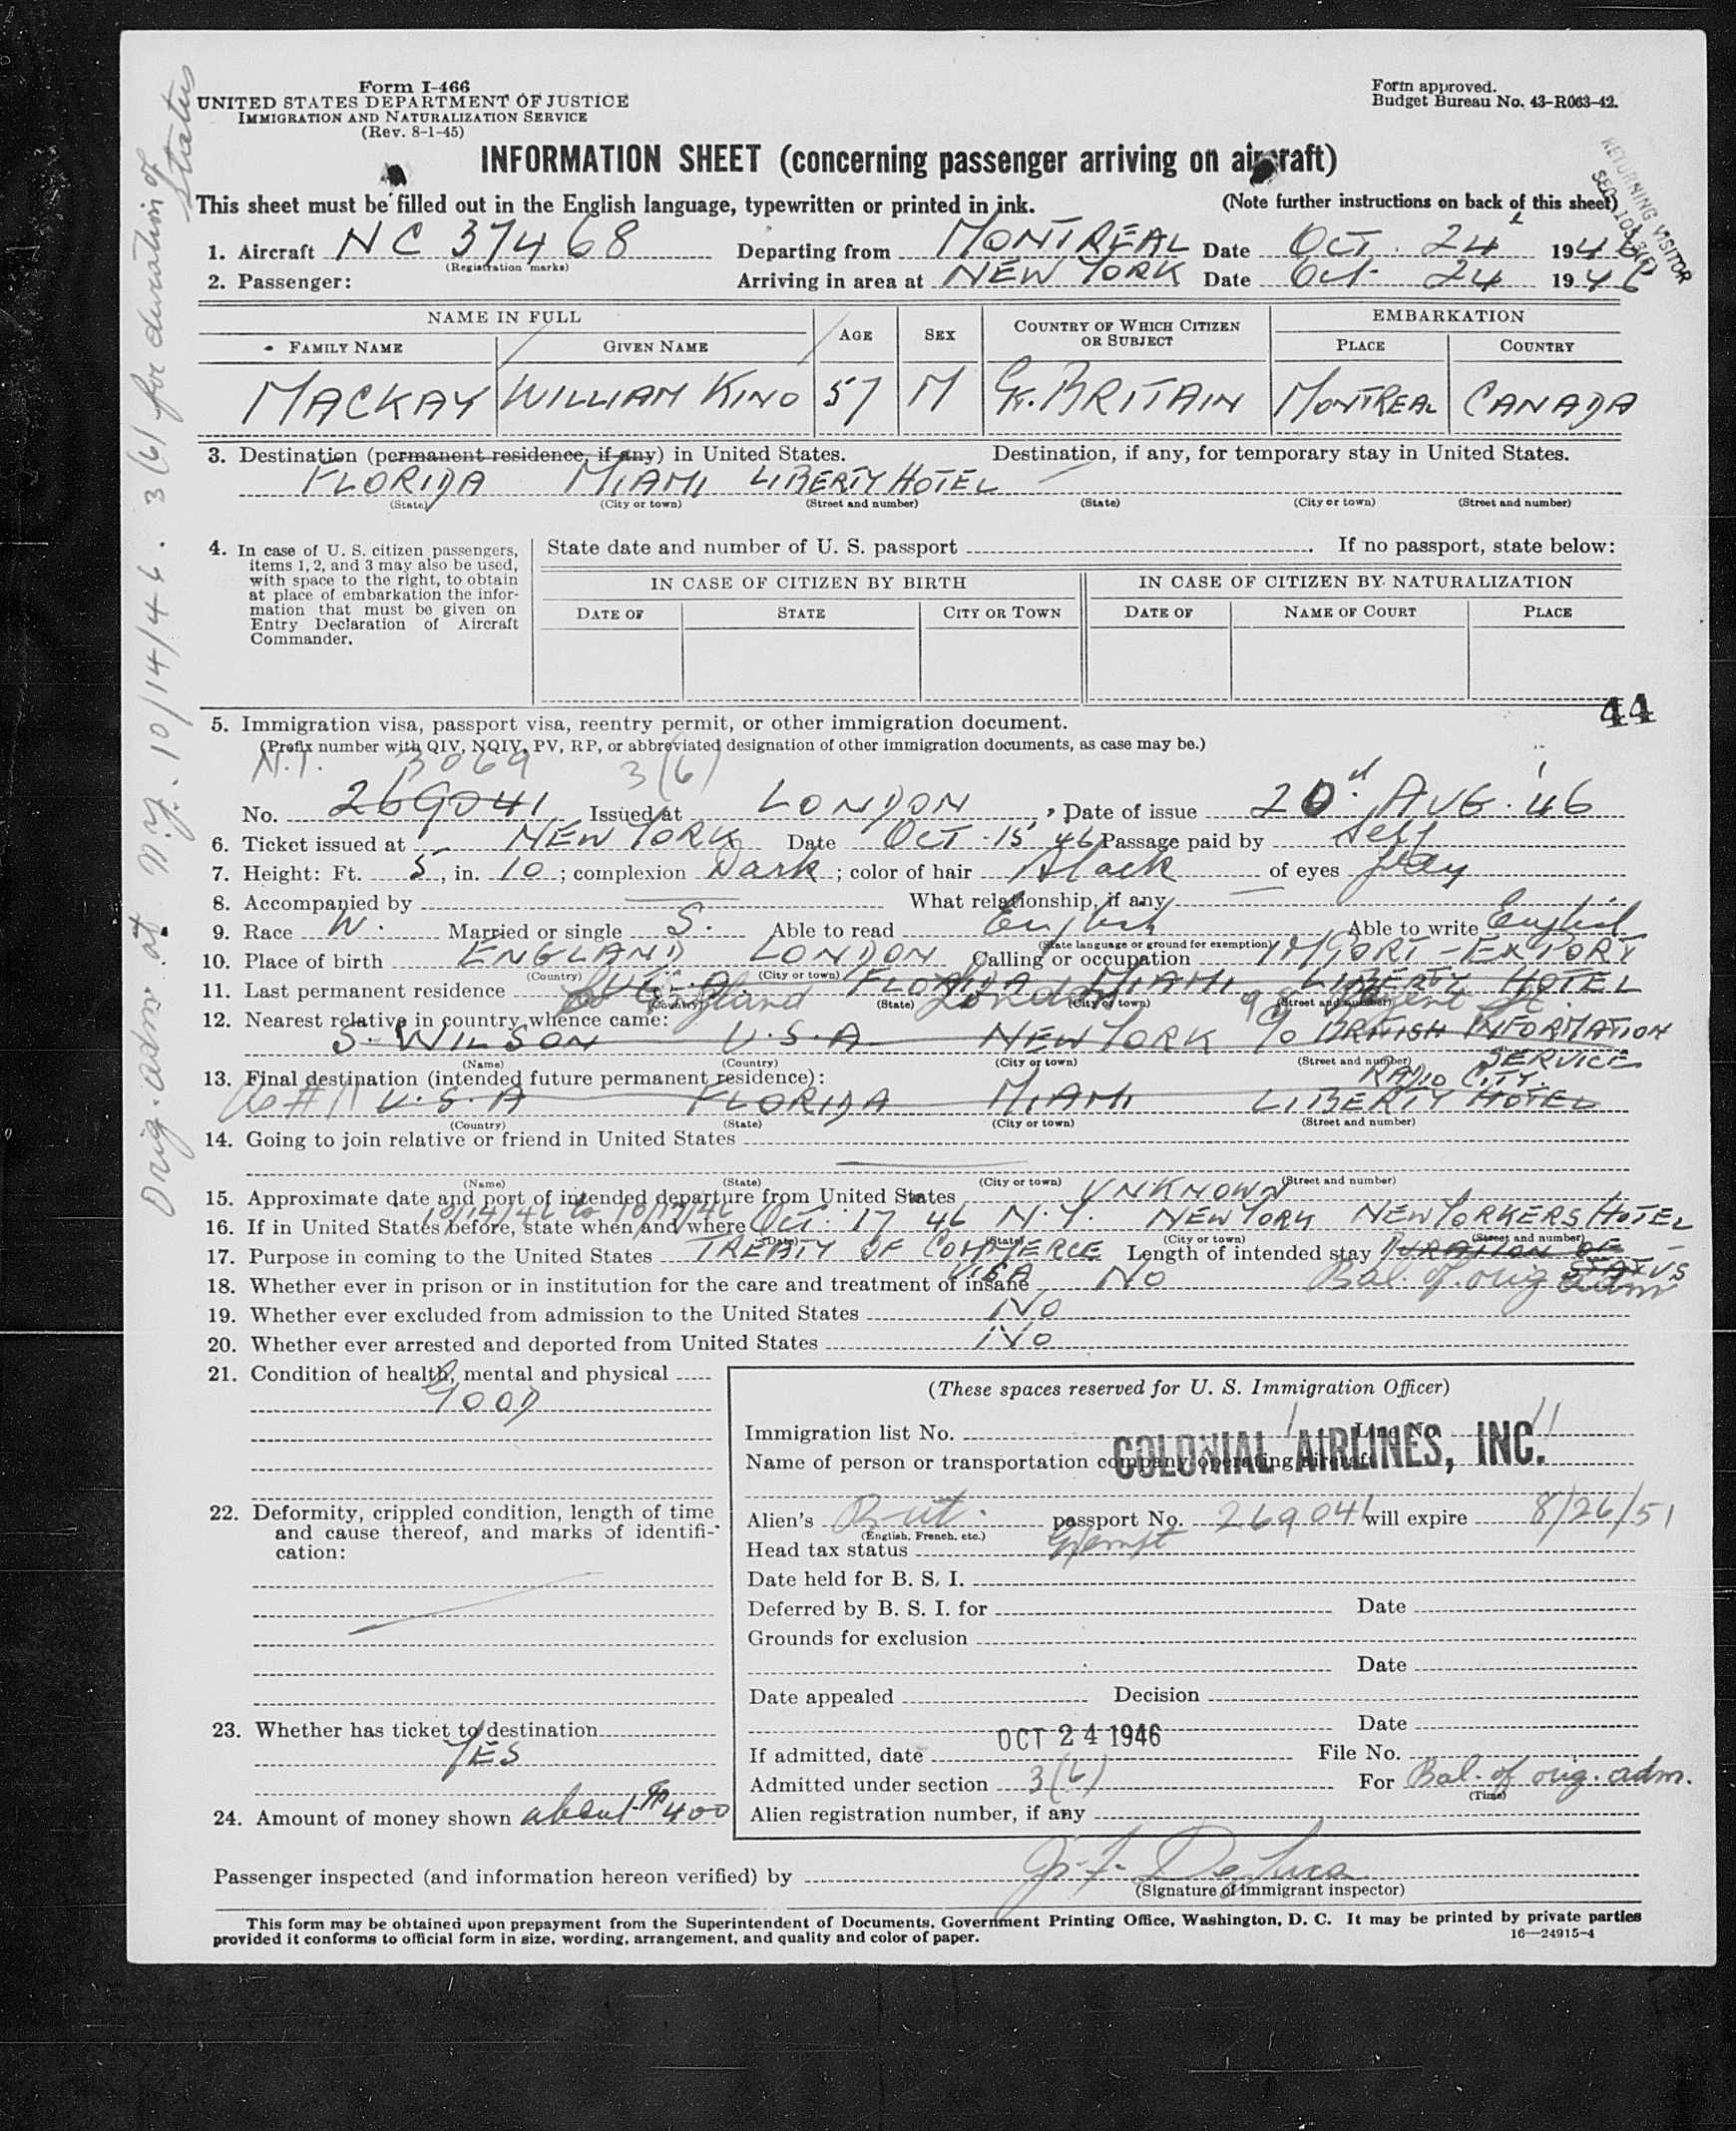 Form I-466
UNITED STATES DEPARTMENT OF JUSTICE
IMMIGRATION AND NATURALIZATION SERVICE
(Rev. 8-1-45)
Form approved.
Budget Bureau No. 43-R063-42.
INFORMATION SHEET (concerning passenger arriving on aircraft)
RETURNING VISITOR
This sheet must be filled out in the English language, typewritten or printed in ink. (Note further instructions on back of this sheet)
1. Aircraft NC 37468 Departing from MONTREAL Date OCT. 24 1946
(Registration marks)
2. Passenger: Arriving in area at NEW YORK Date Oct. 24 1946
NAME IN FULL AGE SEX COUNTRY OF WHICH CITIZEN OR SUBJECT EMBARKATION
FAMILY NAME GIVEN NAME PLACE COUNTRY
MACKAY WILLIAM KING 57 M Gt. BRITAIN MONTREAL CANADA
3. Destination (permanent residence, if any) in United States. Destination, if any, for temporary stay in United States.
FLORIDA MIAMI LIBERTY HOTEL
(State) (City or town) (Street and number) (State) (City or town) (Street and number)
4. In case of U. S. citizen passengers, items 1, 2, and 3 may also be used, with space to the right, to obtain at place of embarkation the information that must be given on Entry Declaration of Aircraft Commander.
State date and number of U. S. passport If no passport, state below:
IN CASE OF CITIZEN BY BIRTH IN CASE OF CITIZEN BY NATURALIZATION
DATE OF STATE CITY OR TOWN DATE OF NAME OF COURT PLACE
44
5. Immigration visa, passport visa, reentry permit, or other immigration document.
(Prefix number with QIV, NQIV, PV, RP, or abbreviated designation of other immigration documents, as case may be.)
3069 3(6)
No. 269041 Issued at LONDON, Date of issue 20. AUG. '46
6. Ticket issued at NEW YORK Date OCT-15 46 Passage paid by Self
7. Height: Ft. 5, in. 10; complexion Dark; color of hair Black of eyes Gray
8. Accompanied by What relationship, if any
9. Race W. Married or single S. Able to read English Able to write English
(State language or ground for exemption)
10. Place of birth ENGLAND LONDON Calling or occupation IMPORT-EXPORT
(Country) (City or town)
11. Last permanent residence U.S.A. FLORIDA MIAMI LIBERTY HOTEL
England London
(Country) (State) (City or town) (Street and number)
12. Nearest relative in country whence came:
S. WILSON U.S.A NEW YORK c/o BRITISH INFORMATION SERVICE
(Name) (Country) (City or town) (Street and number)
RADIO CITY.
13. Final destination (intended future permanent residence):
U.S.A FLORIDA MIAMI LIBERTY HOTEL
(Country) (State) (City or town) (Street and number)
14. Going to join relative or friend in United States
(Name) (State) (City or town) (Street and number)
15. Approximate date and port of intended departure from United States UNKNOWN
10/14/46 to 10/17/46
16. If in United States before, state when and where OCT. 17 46 N.Y. NEW YORK NEW YORKERS HOTEL
(Date) (State) (City or town) (Street and number)
17. Purpose in coming to the United States TREATY OF COMMERCE VISA Length of intended stay DURATION OF STATUS
Bal. of orig adm
18. Whether ever in prison or in institution for the care and treatment of insane No
19. Whether ever excluded from admission to the United States No
20. Whether ever arrested and deported from United States No
21. Condition of health, mental and physical
GOOD
22. Deformity, crippled condition, length of time and cause thereof, and marks of identification:
23. Whether has ticket to destination
YES
24. Amount of money shown about $400
(These spaces reserved for U. S. Immigration Officer)
Immigration list No. 1 Line No. 11
Name of person or transportation company operating aircraft
COLONIAL AIRLINES, INC.
Alien's Brit. passport No. 269041 will expire 8/26/51
(English, French, etc.)
Head tax status Exempt
Date held for B. S. I.
Deferred by B. S. I. for Date
Grounds for exclusion
Date
Date appealed Decision
Date
If admitted, date OCT 24 1946 File No.
Admitted under section 3(6) For Bal. of orig. adm.
(Time)
Alien registration number, if any
Passenger inspected (and information hereon verified) by
(Signature of immigrant inspector)
This form may be obtained upon prepayment from the Superintendent of Documents, Government Printing Office, Washington, D. C. It may be printed by private parties
provided it conforms to official form in size, wording, arrangement, and quality and color of paper.
16—24915-4
Orig. adm. at N.Y. 10/14/46. 3(6) for duration of Status